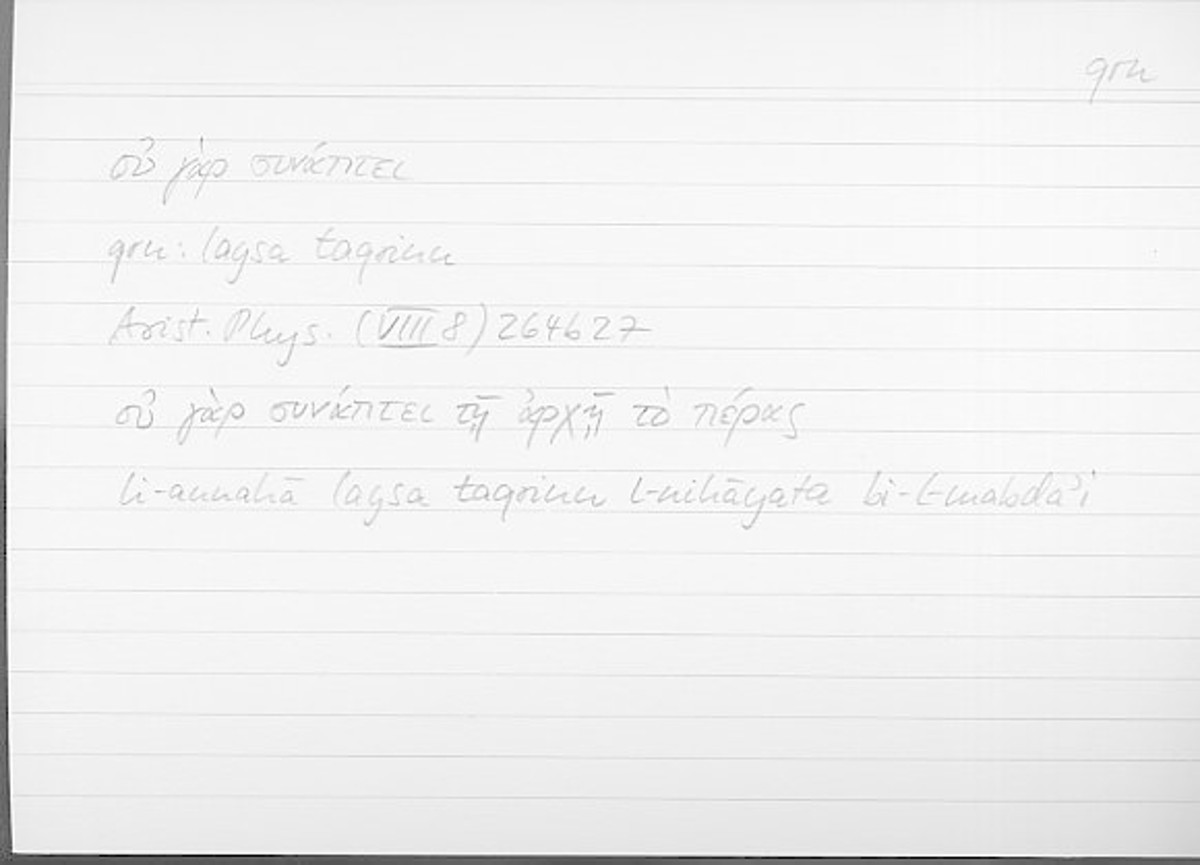 qrn
οὐ γὰρ συνάπτει
qrn: laysa taqrinu
Arist. Phys. (VIII 8) 264b27
οὐ γὰρ συνάπτει τῇ ἀρχῇ τὸ πέρας
li-annahā laysa taqrinu l-nihāyata bi-l-mabdaʾi